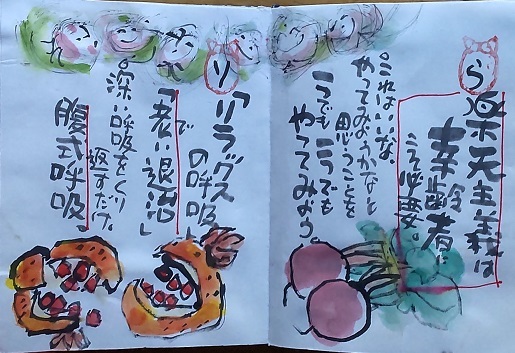 ら
楽天主義は
幸齢者に
こそ必要。
。これはいいな
やってみようかなと
思うことを
一つでも二つでも
やってみよう。
り
「リラックス
の呼吸」
で
「老い退治」
。深い呼吸をくり
返すだけ。
腹式呼吸。